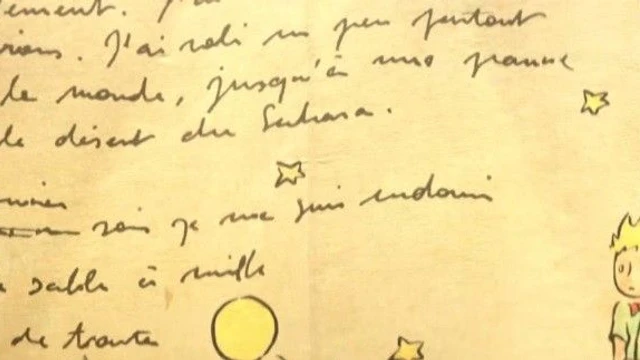 ement. J'ai
vions. J'ai volé un peu partout
le monde, jusqu'à une panne
le désert du Sahara.
mier
soir je me suis endormi
sable à mille
de toute